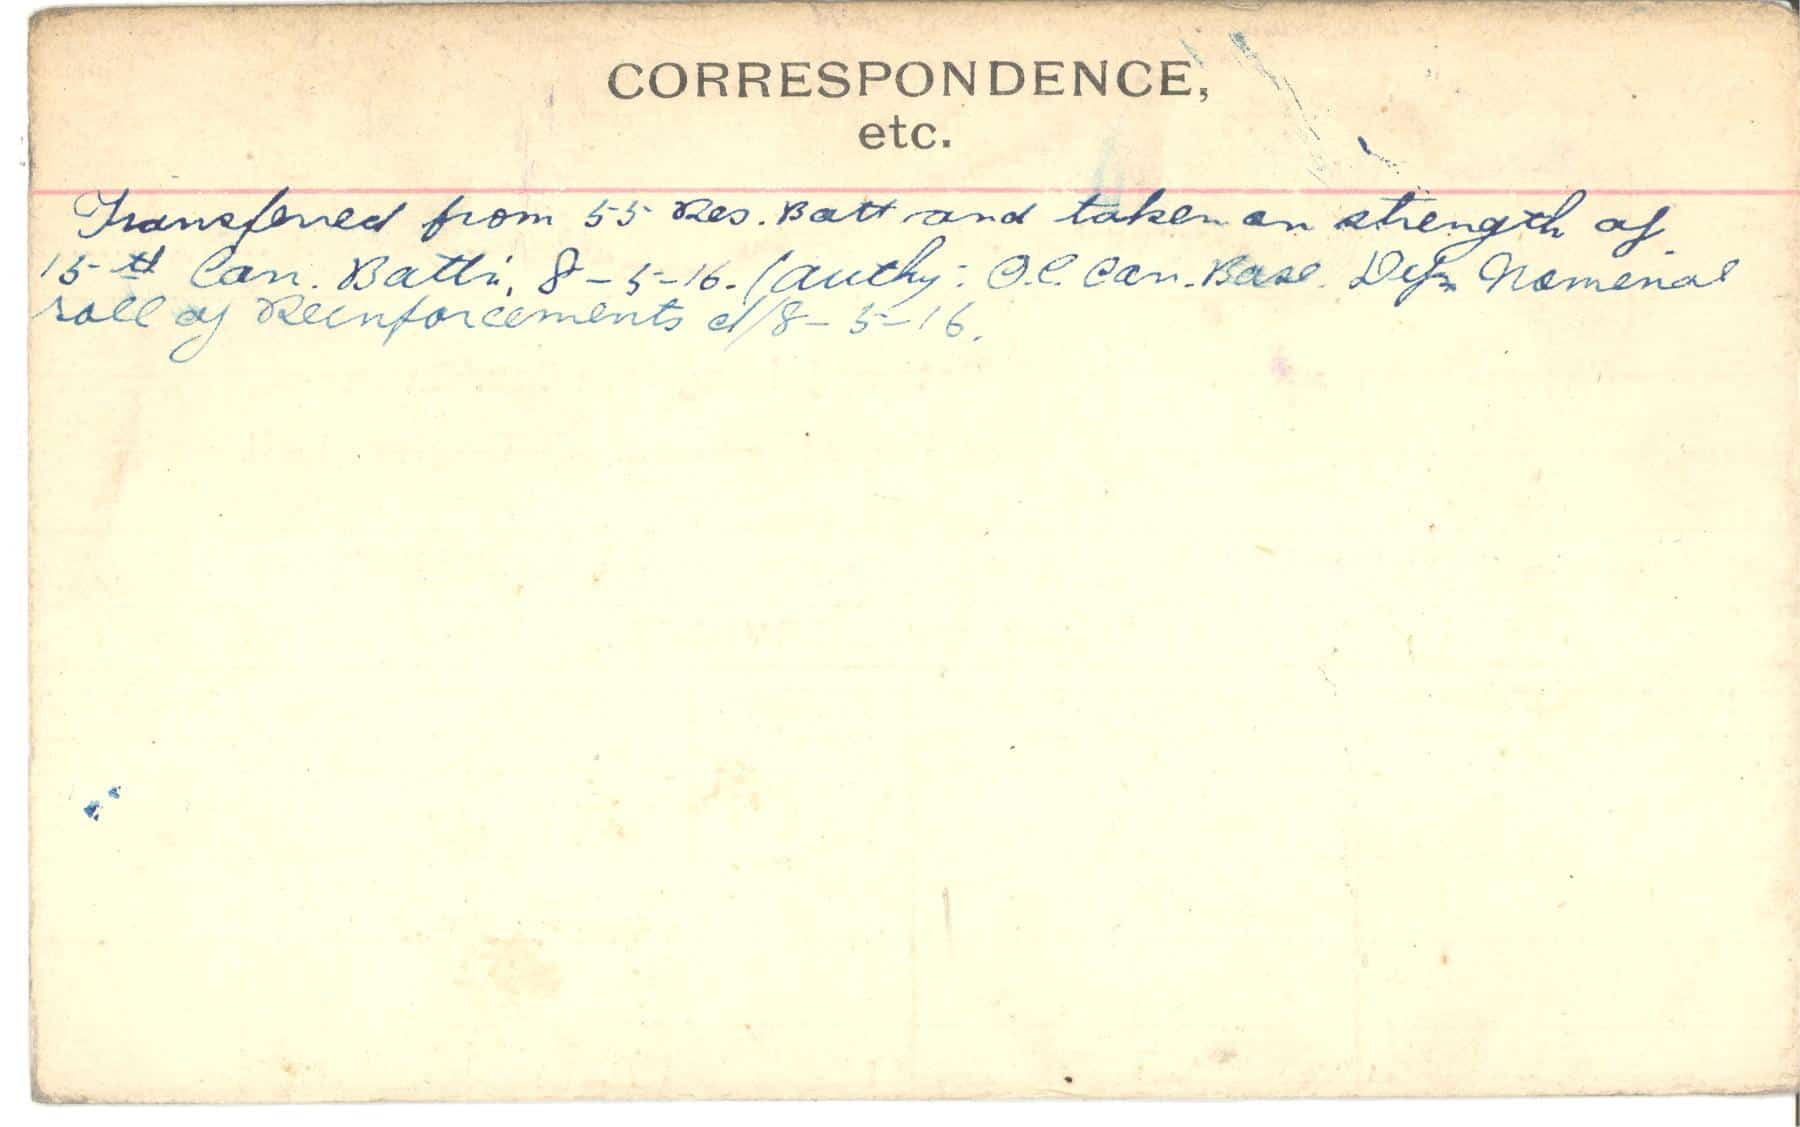 CORRESPONDENCE,
etc.
Transferred from 55 Res. Batt and taken on strength of
15th Can. Battn, 8-5-16. (authy: O.C. Can. Base. Nominal
roll of Reinforcements d/8-5-16.